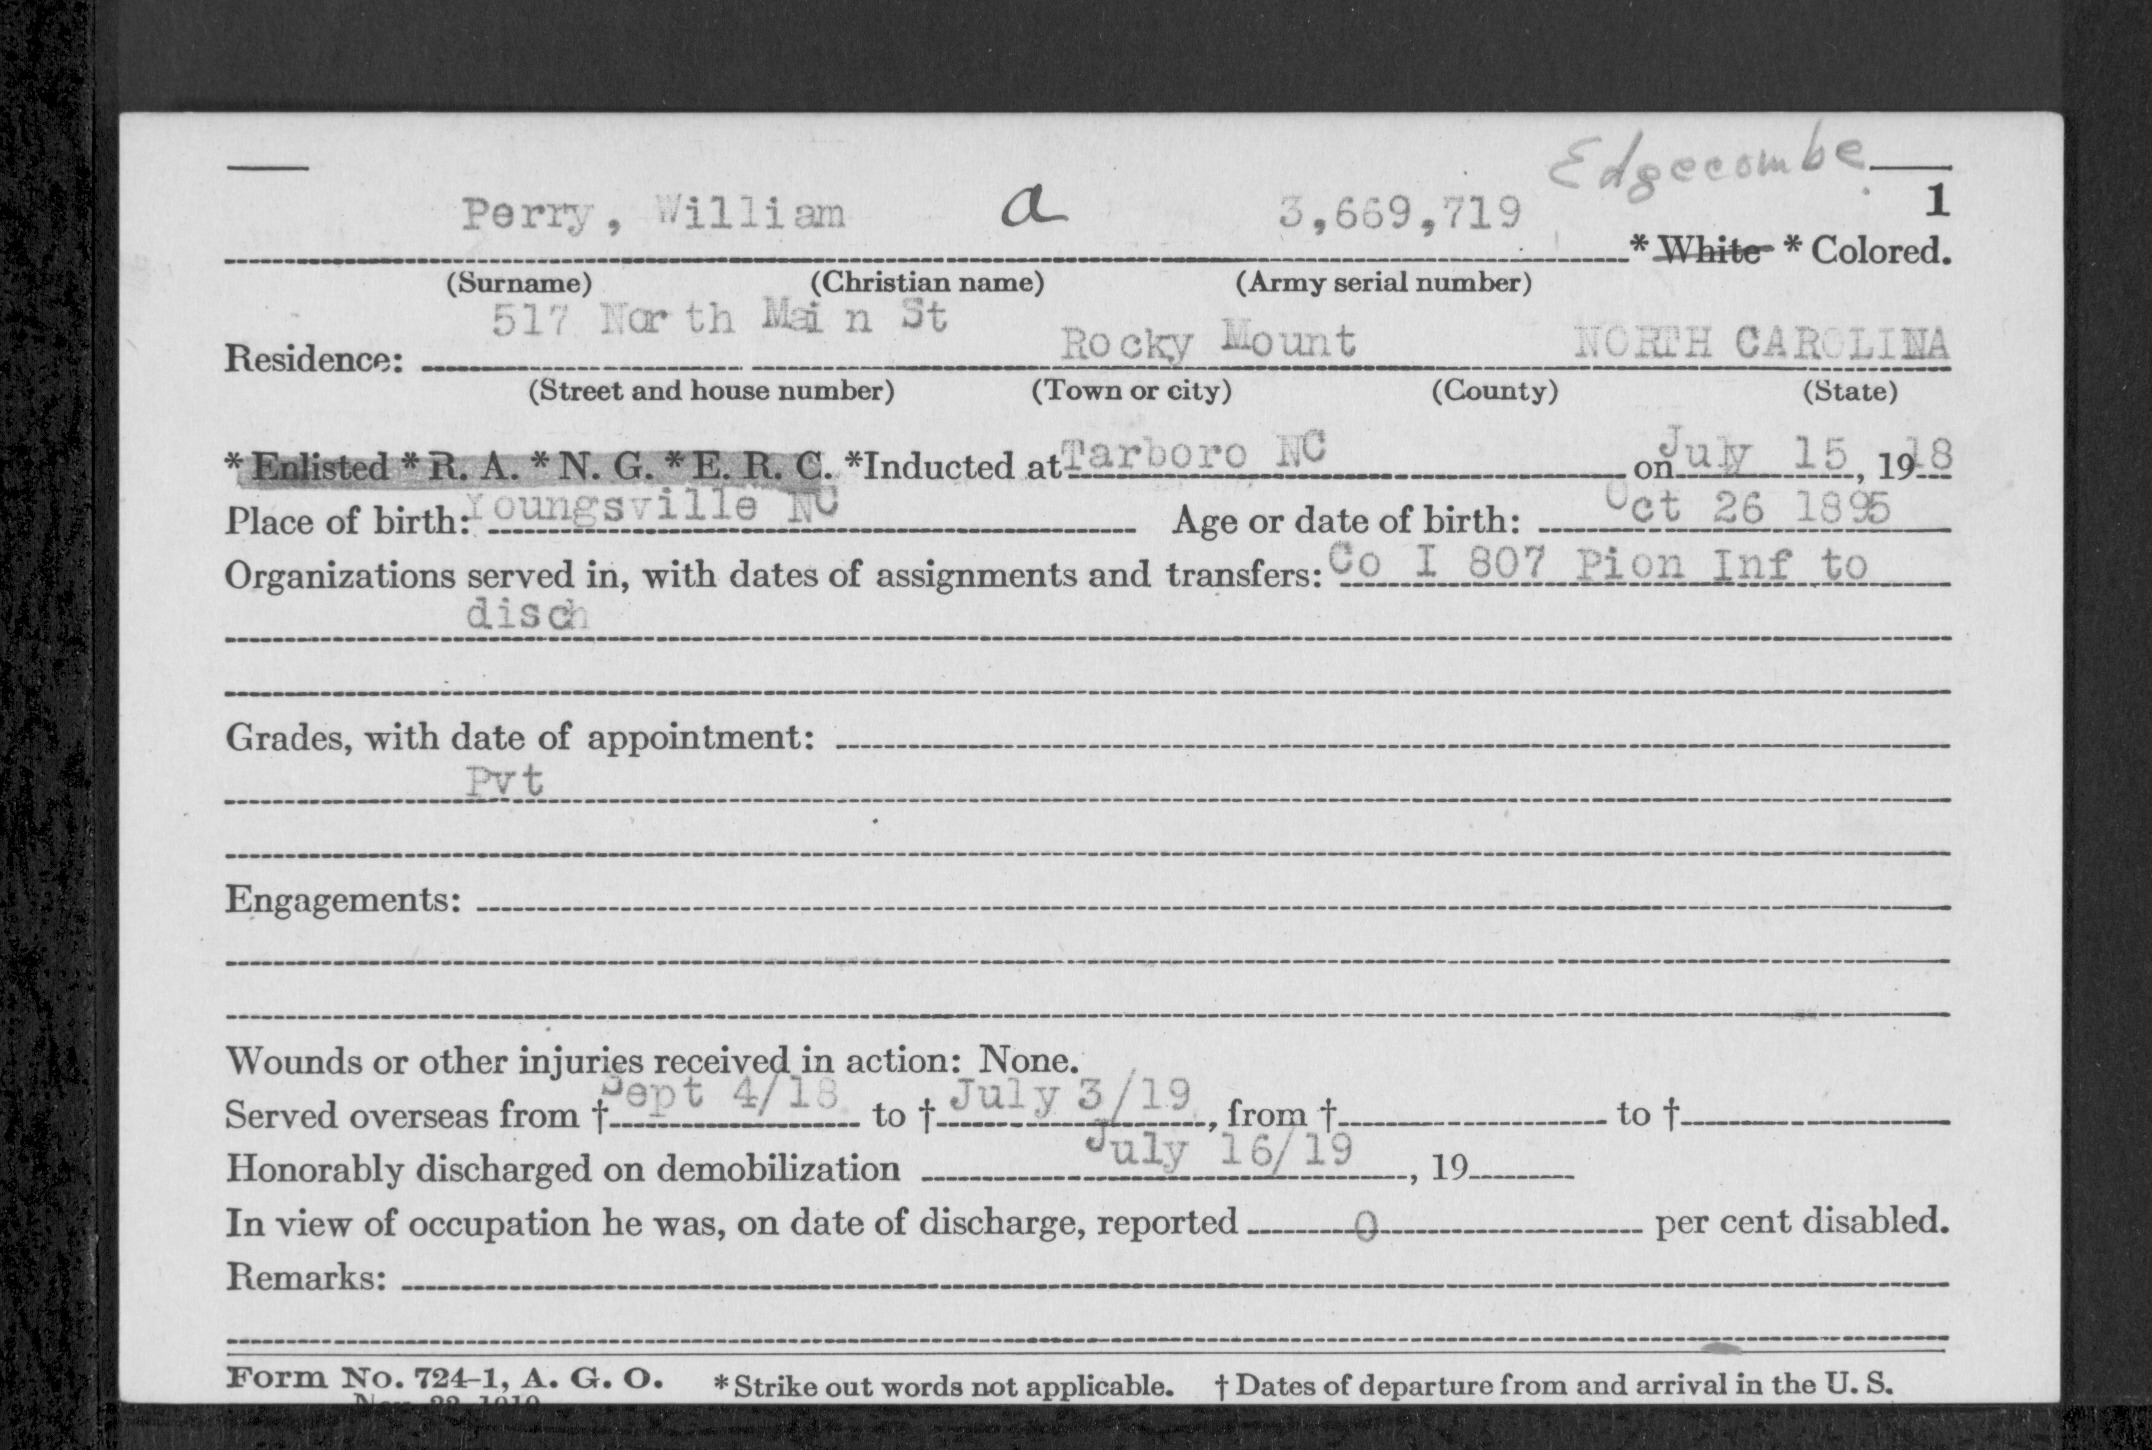 Edgecombe
1
Perry, William a 3,669,719 * White * Colored.
(Surname) (Christian name) (Army serial number)
517 North Main St Rocky Mount NORTH CAROLINA
Residence:
(Street and house number) (Town or city) (County) (State)
* Enlisted * R. A. * N. G. * E. R. C. *Inducted at Tarboro NC on July 15, 1918
Place of birth: Youngsville NC Age or date of birth: Oct 26 1895
Organizations served in, with dates of assignments and transfers: Co I 807 Pion Inf to
disch
Grades, with date of appointment:
Pvt
Engagements:
Wounds or other injuries received in action: None.
Served overseas from † Sept 4/18 to † July 3/19, from † to †
Honorably discharged on demobilization July 16/19, 19
In view of occupation he was, on date of discharge, reported 0 per cent disabled.
Remarks:
Form No. 724-1, A. G. O. * Strike out words not applicable. † Dates of departure from and arrival in the U. S.